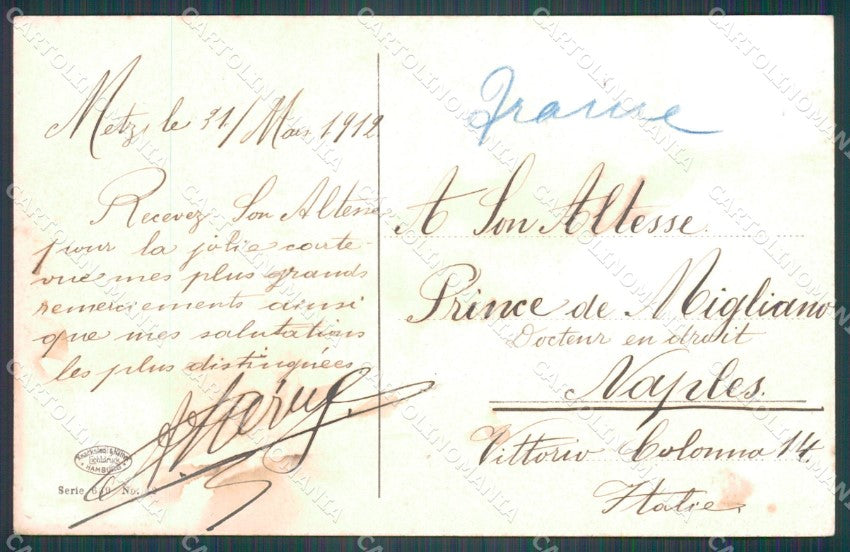 Metz le 31/Mars 1912
Recevez Son Altesse
pour la jolie carte-
vue mes plus grands
remerciements ainsi
que mes salutations
les plus distinguées
HAMBURG
Serie 6 No.
France
A Son Altesse
Prince de Migliano
Docteur en droit
Naples.
Vittorio Colonna 14
Italie.
CARTOLINOMANIA